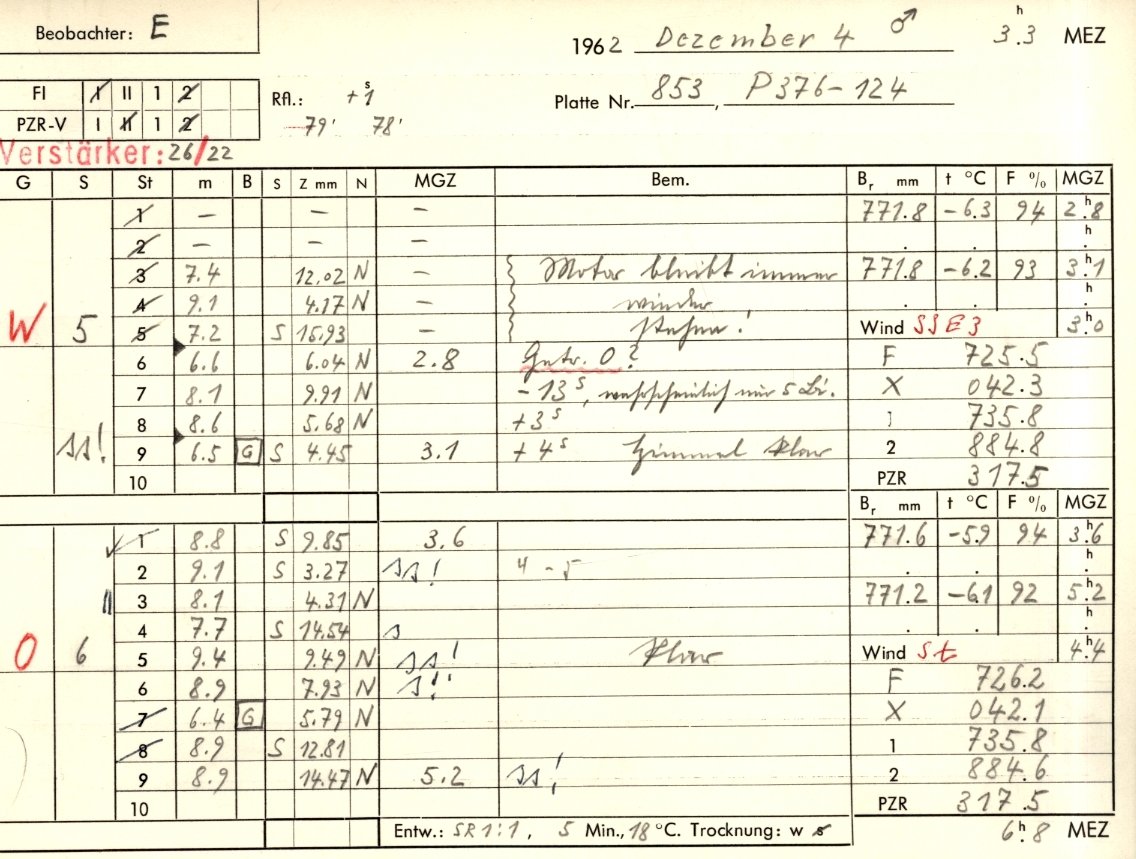 Beobachter: E
1962 Dezember 4 ♂ 3ʰ.3 MEZ
FI I II 1 2
Rfl.: +1ˢ
79' 78'
Platte Nr. 853, P376-124
PZR-V I II 1 2
Verstärker: 26/22
G S St m B S Z mm N MGZ Bem. Bᵣ mm t °C F % MGZ
1 – – – 771.8 -6.3 94 2ʰ.8
2 – – . . ʰ.
3 7.4 12.02 N – Motor bleibt immer 771.8 -6.2 93 3ʰ.1
4 9.1 4.17 N – wieder . . ʰ.
W 5 5 7.2 S 15.93 – stehen! Wind SSE 3 3ʰ.0
6 6.6 6.04 N 2.8 Getr. O? F 725.5
7 8.1 9.91 N -13ˢ, wahrscheinlich nur 5 Li. X 042.3
8 8.6 5.68 N +3ˢ 1 735.8
ss! 9 6.5 G S 4.45 3.1 +4ˢ Himmel klar 2 884.8
10 PZR 317.5
Bᵣ mm t °C F % MGZ
1 8.8 S 9.85 3.6 771.6 -5.9 94 3ʰ.6
2 9.1 S 3.27 ss! 4 - 5 . . ʰ.
3 8.1 4.31 N 771.2 -6.1 92 5ʰ.2
4 7.7 S 14.54 s . . ʰ.
O 6 5 9.4 9.49 N ss! klar Wind St 4ʰ.4
6 8.9 7.93 N s!' F 726.2
7 6.4 G 5.79 N X 042.1
8 8.9 S 12.81 1 735.8
9 8.9 14.47 N 5.2 ss! 2 884.6
10 PZR 317.5
Entw.: SR 1:1, 5 Min., 18 °C. Trocknung: w s 6ʰ.8 MEZ